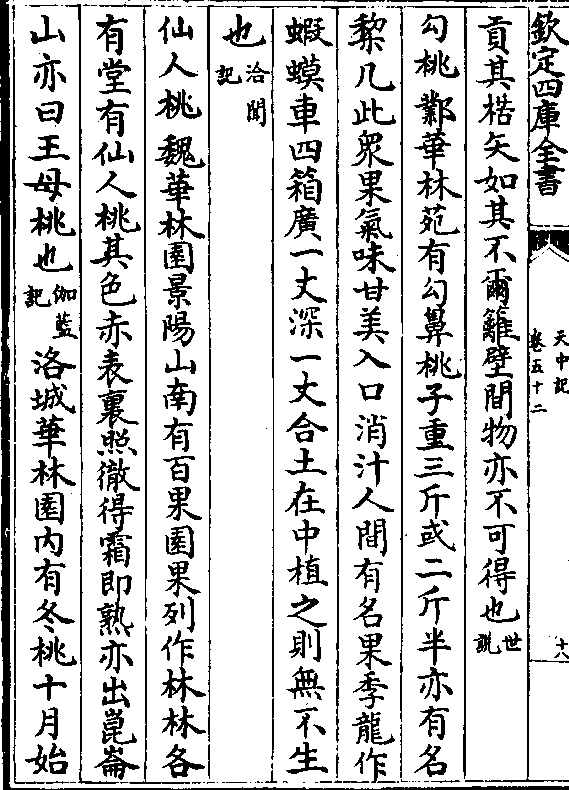 欽定四庫全書
天中記
卷五十二
十八
貢其楛矢如其不爾籬壁間物亦不可得也世說
勾桃 鄴華林苑有勾鼻桃子重三斤或二斤半亦有名
棃凡此衆果氣味甘美入口消汁人間有名果季龍作
蝦蟆車四箱廣一丈深一丈合土在中植之則無不生
也洽聞記
仙人桃 魏華林園景陽山南有百果園果列作林林各
有堂有仙人桃其色赤表裏照徹得霜即熟亦出崑崙
山亦曰王母桃也伽藍記 洛城華林園内有冬桃十月始